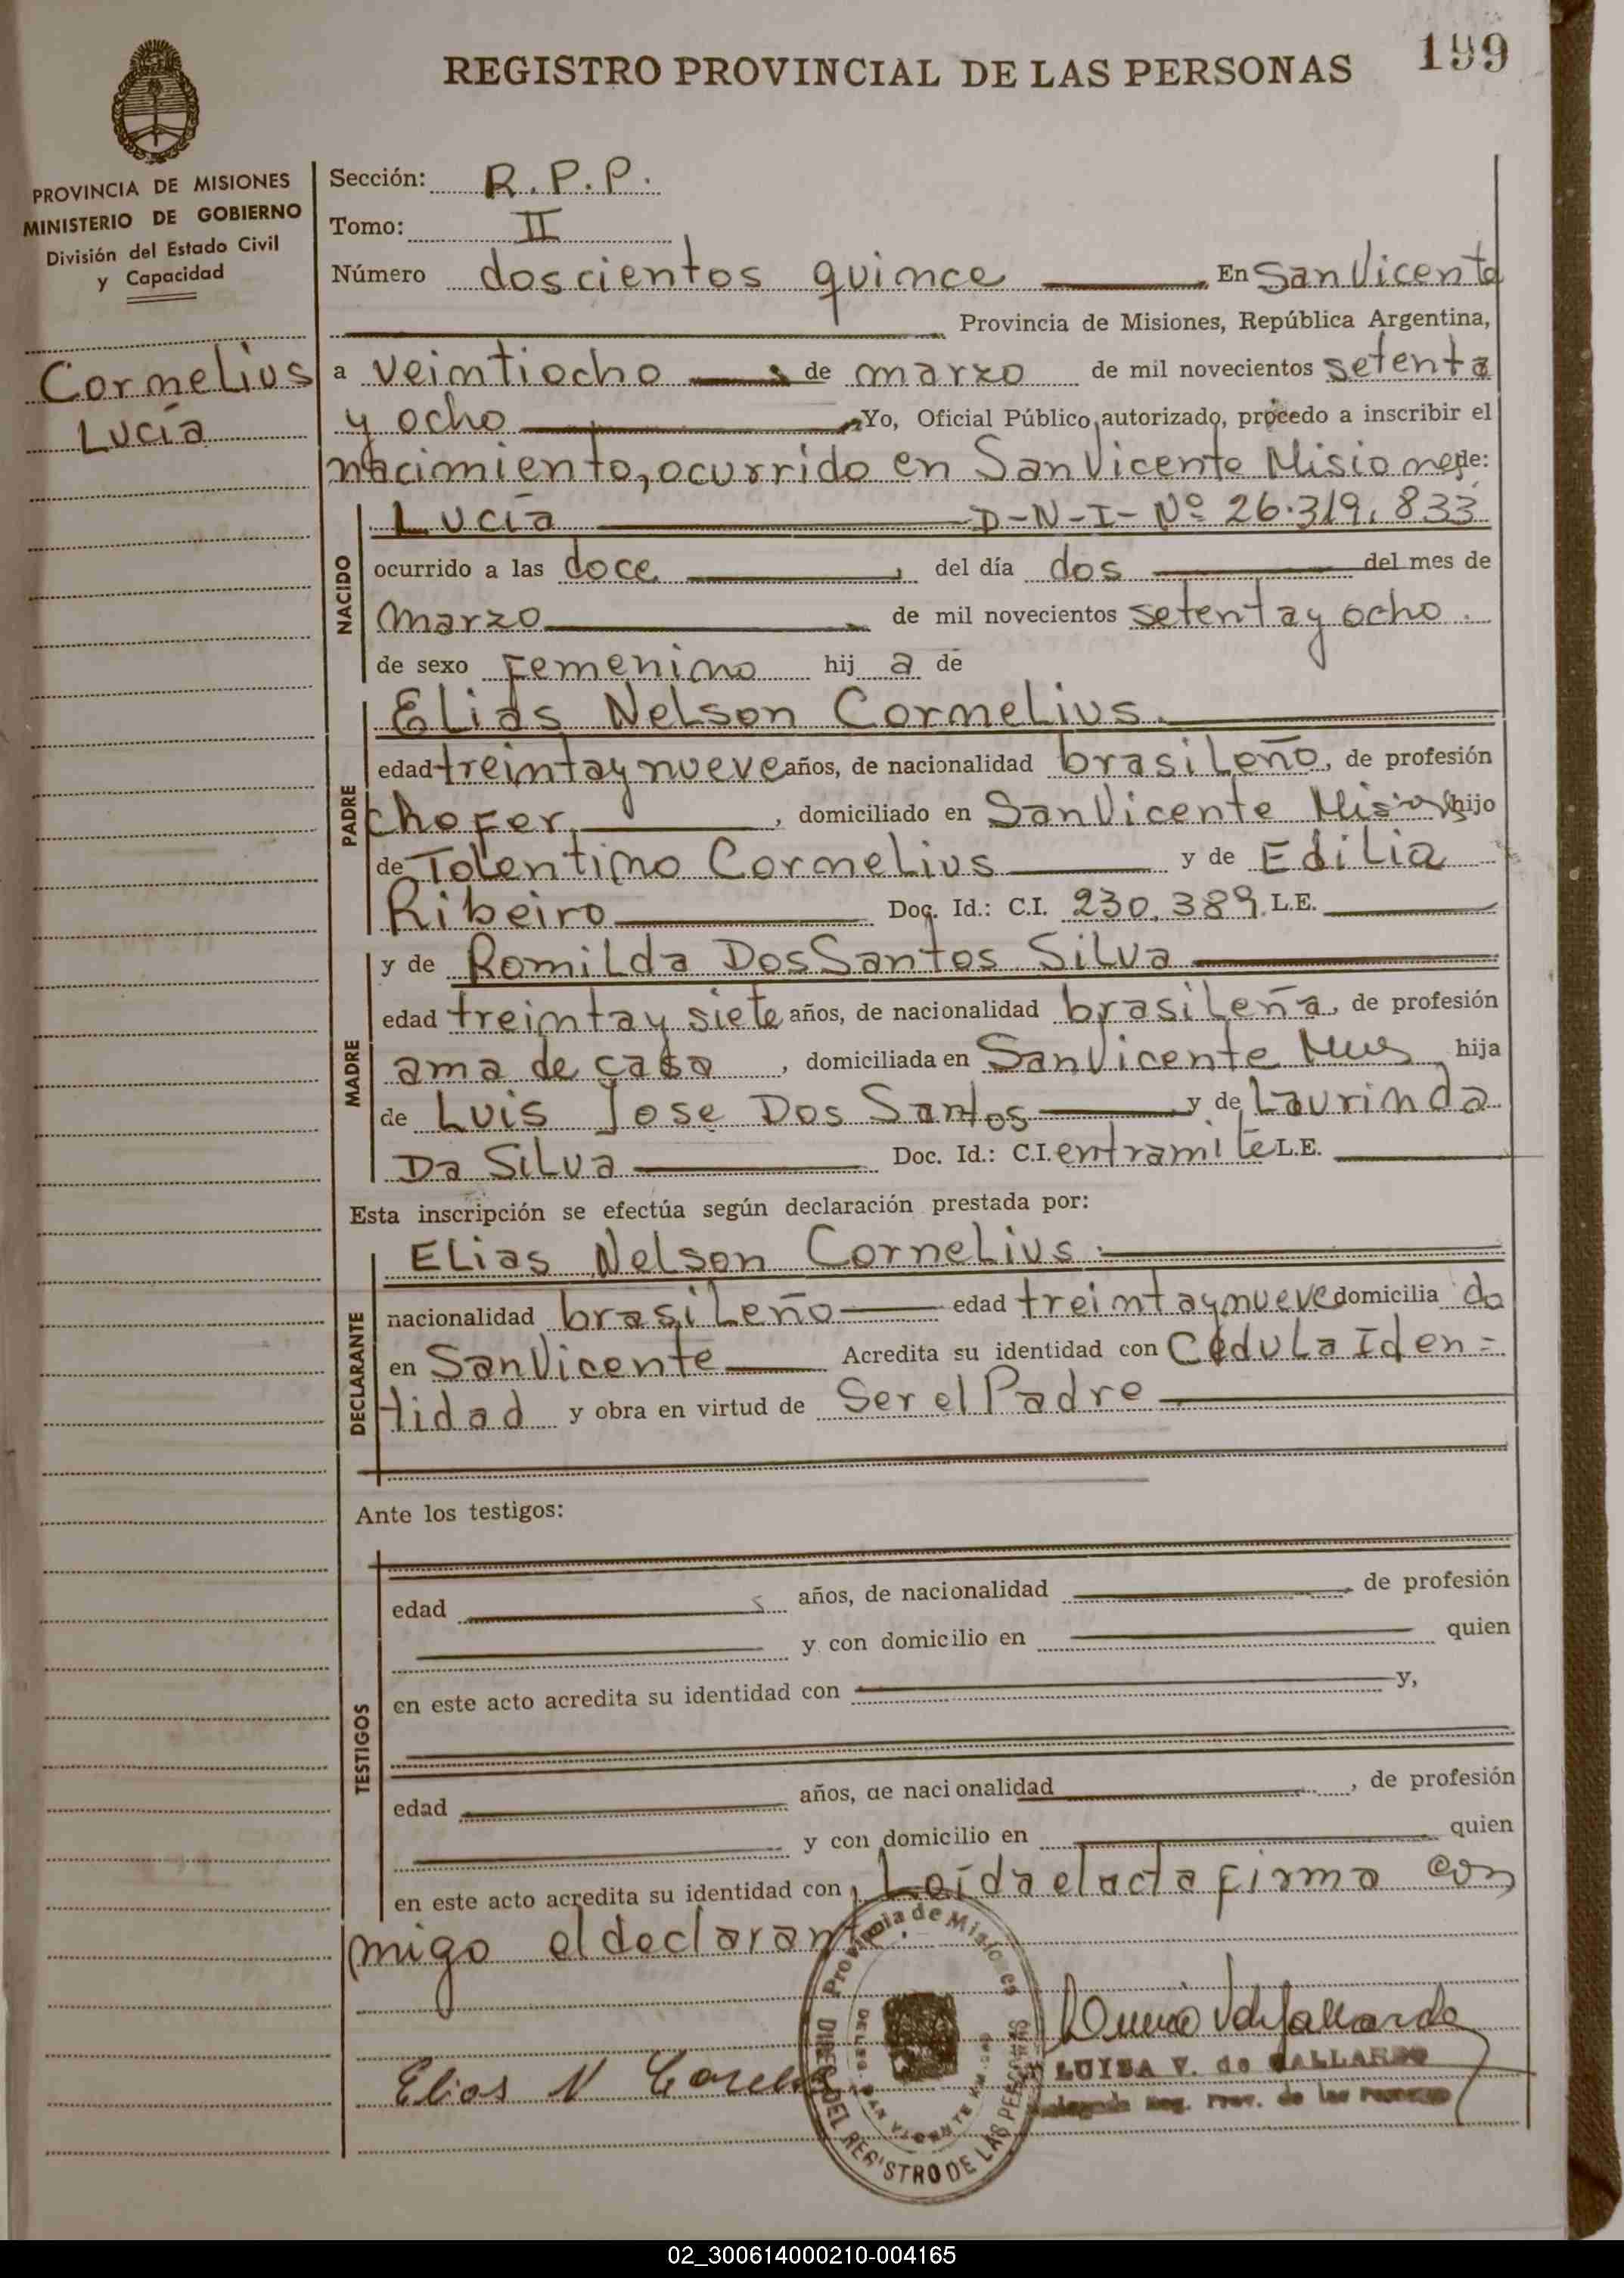 REGISTRO PROVINCIAL DE LAS PERSONAS 199
PROVINCIA DE MISIONES
MINISTERIO DE GOBIERNO
División del Estado Civil
y Capacidad
Cornelius
Lucía
Sección: R.P.P.
Tomo: II
Número doscientos quince En San Vicente
Provincia de Misiones, República Argentina,
a veintiocho de marzo de mil novecientos setenta
y ocho Yo, Oficial Público autorizado, procedo a inscribir el
nacimiento, ocurrido en San Vicente Misiones de:
NACIDO
Lucía D-N-I- Nº 26.319.833
ocurrido a las doce, del día dos del mes de
marzo de mil novecientos setenta y ocho.
de sexo Femenino hij a de
PADRE
Elias Nelson Cornelius.
edad treinta y nueve años, de nacionalidad brasileño, de profesión
chofer, domiciliado en San Vicente Misiones hijo
de Tolentino Cornelius y de Edilia
Ribeiro Doc. Id.: C.I. 230.389. L.E.
MADRE
y de Romilda Dos Santos Silva
edad treinta y siete años, de nacionalidad brasileña, de profesión
ama de casa, domiciliada en San Vicente Mnes hija
de Luis Jose Dos Santos y de Laurinda
Da Silva Doc. Id.: C.I. en tramite L.E.
Esta inscripción se efectúa según declaración prestada por:
DECLARANTE
Elias Nelson Cornelius.
nacionalidad brasileño edad treinta y nueve domicilia do
en San Vicente Acredita su identidad con Cédula Iden=
tidad y obra en virtud de Ser el Padre
Ante los testigos:
TESTIGOS
edad años, de nacionalidad de profesión
y con domicilio en quien
en este acto acredita su identidad con y,
edad años, de nacionalidad, de profesión
y con domicilio en quien
en este acto acredita su identidad con, Leída el acta firma con
migo el declarante.
Provincia de Misiones
DIREC. DEL REGISTRO DE LAS PERSONAS
Elias N Corneli
LUISA V. de GALLARDO
Delegada Reg. Prov. de las Personas
02_300614000210-004165